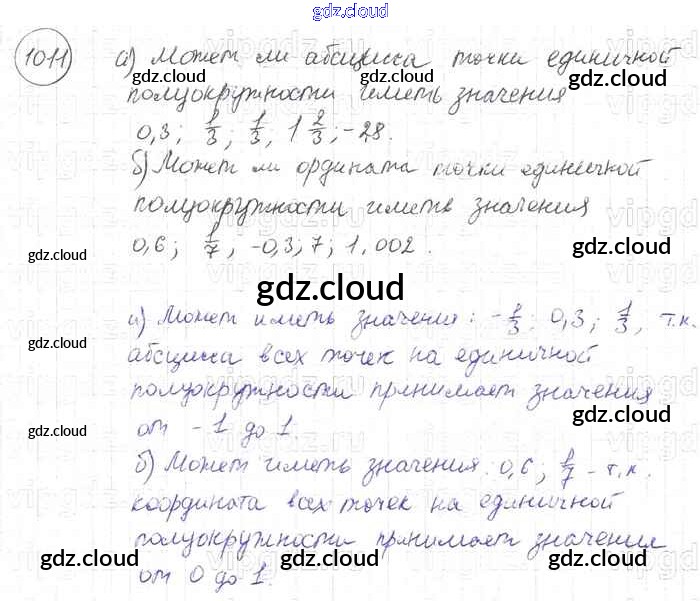 gdz.cloud
1011 а) Может ли абсцисса точки единичной
gdz.cloud gdz.cloud
полуокружности иметь значения
0,3; 1/3; 1/3; 1 2/3; -2,8.
б) Может ли ордината точки единичной
gdz.cloud
полуокружности иметь значения
0,6; 1/7; -0,3; 7; 1,002.
gdz.cloud gdz.cloud
gdz.cloud
а) Может иметь значения: -1/3; 0,3; 1/3, т.к.
gdz.cloud
абсцисса всех точек на единичной
полуокружности принимает значения
gdz.cloud gdz.cloud
от -1 до 1.
б) Может иметь значения: 0,6; 1/7 - т.к.
координата всех точек на единичной
полуокружности принимает значения
gdz.cloud gdz.cloud gdz.cloud
от 0 до 1.